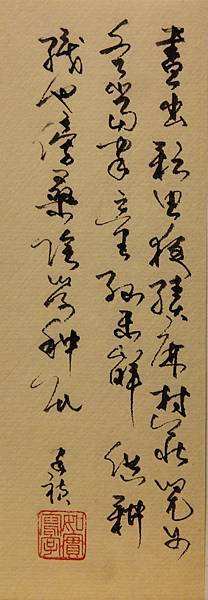 晝出耘田夜績麻村莊兒女
各當家童孫未解供耕
織也傍桑陰學種瓜